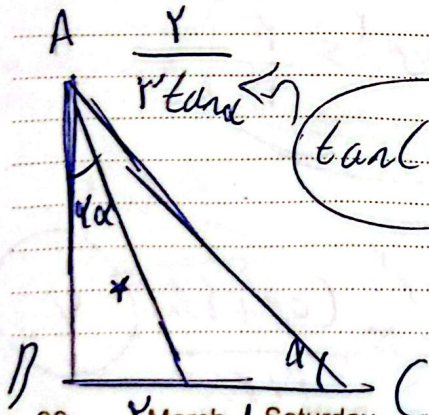 A
۲
۲ tanα
tan(
۲α
*
α
B C
March Saturday